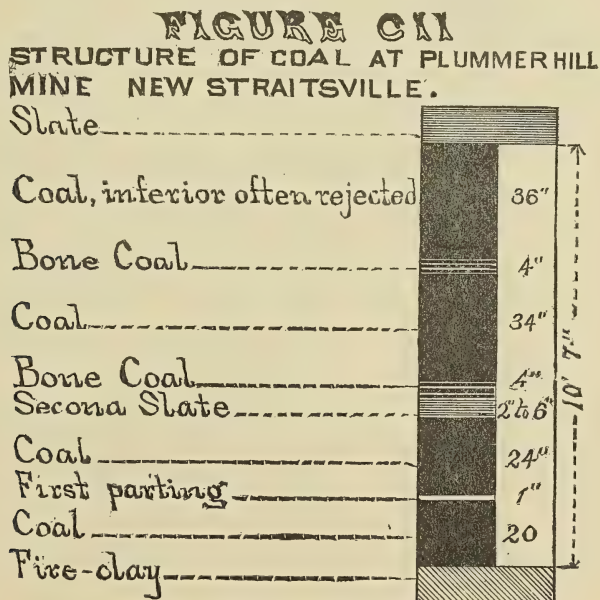 FIGURE CII
STRUCTURE OF COAL AT PLUMMER HILL
MINE NEW STRAITSVILLE.
Slate
Coal, inferior often rejected 36"
Bone Coal 4"
Coal 34"
Bone Coal 4"
Second Slate 2" to 6"
Coal 24"
First parting 1"
Coal 20
Fire-clay
10' 7"